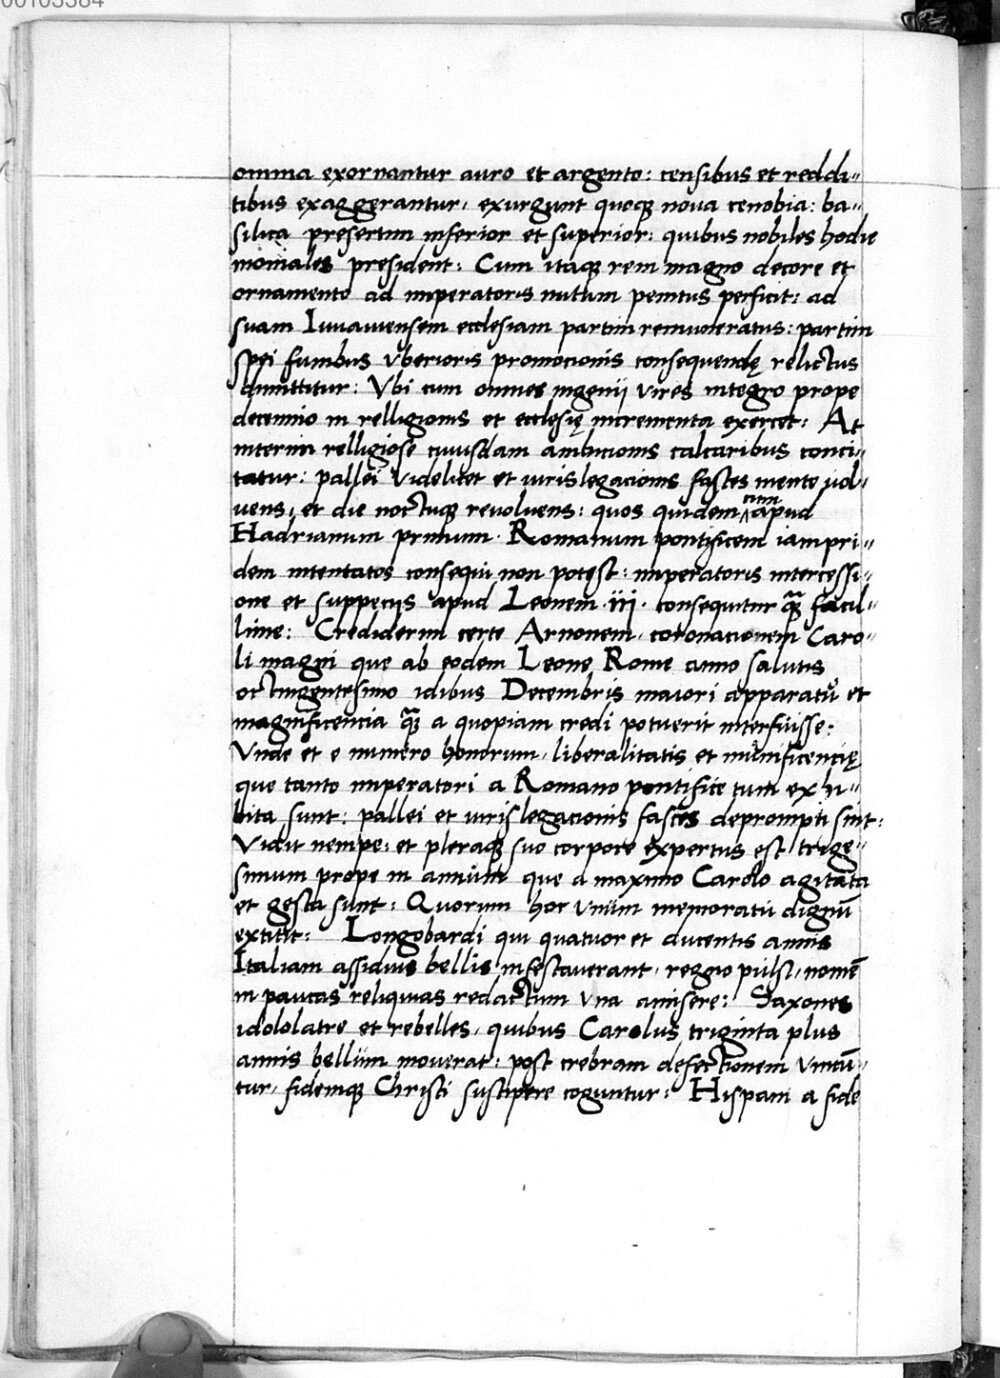 00103384
omnia exornantur auro et argento: censibus et reddi-
tibus exaggerantur, exurgunt quoqꝫ nova cenobia: ba-
silica presertim inferior et superior: quibus nobiles hodie
moniales president: Cum itaqꝫ rem magno decore et
ornamento ad imperatoris nutum penitus perficit: ad
suam Iuvavensem ecclesiam partim remuneratus: partim
spei funibus vberioris promocionis consequendę relictus
dimittitur: Vbi cum omnes ingenij vires integro prope
decennio in relligionis et ecclesię incrementa exercet: At
interim relligiose cuiusdam ambicionis calcaribus conci-
tatur: pallei videlicet et iuris legacionis fasces mente vol-
vens, et die noctuqꝫ revolvens: quos quidem cum apud
Hadrianum primum Romanum pontificem iampri-
dem intentatos consequi non potest: imperatoris intercessi-
one et suppecijs apud Leonem .iij. consequitur q̄ꝫ facil-
lime: Crediderim certe Arnonem, coronacionem Caro-
li magni que ab eodem Leone Rome anno salutis
octingentesimo idibus Decembris maiori apparatu et
magnificencia q̄ꝫ a quopiam credi potuerit interfuisse:
Vnde et e numero honorum, liberalitatis et munificencię
que tanto imperatori a Romano pontifice tum exhi-
bita sunt: pallei et iuris legacionis fasces deprompti sint:
Vidit nempe: et pleraqꝫ suo corpore expertus est trige-
simum prope in annum que a maximo Carolo agitata
et gesta sunt: Quorum hoc vnum memoratu dignū
extitit: Longobardi qui quatuor et ducentis annis
Italiam assiduis bellis infestaverant, reggio pulsi, nomē
in paucas reliquias redactum vna amisere: Saxones
idololatre et rebelles, quibus Carolus triginta plus
annis bellum moverat: post crebram defectionem vincū-
tur, fidemqꝫ Christi suscipere coguntur: Hispani a fide